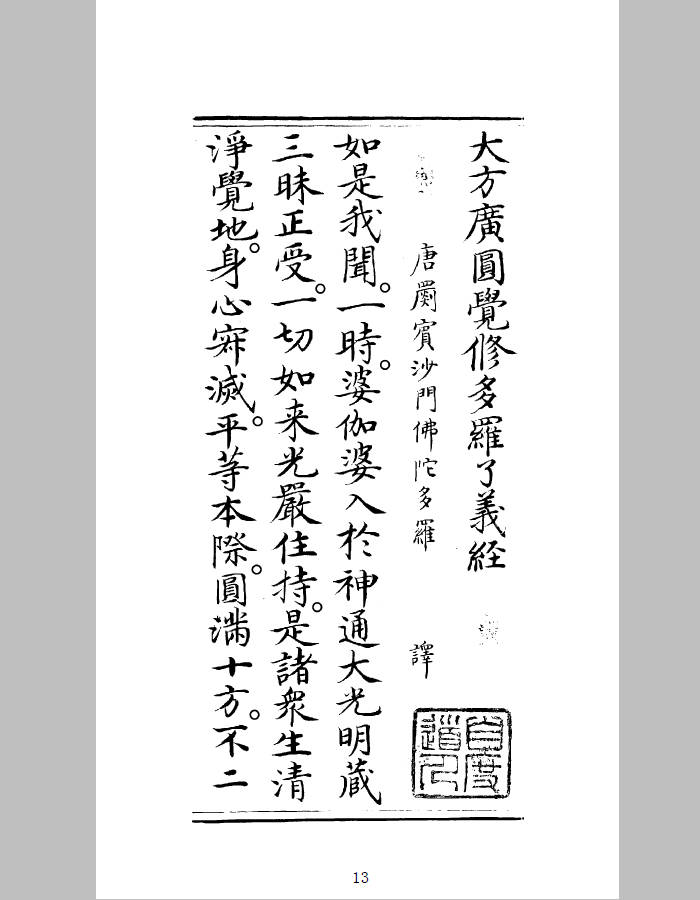 大方廣圓覺修多羅了義経
唐罽賓沙門佛陀多羅 譯
如是我聞。一時。婆伽婆入於神通大光明蔵
三昧正受。一切如来光嚴住持。是諸衆生清
淨覺地。身心寂滅。平等本際。圓滿十方。不二
自度
道人
13